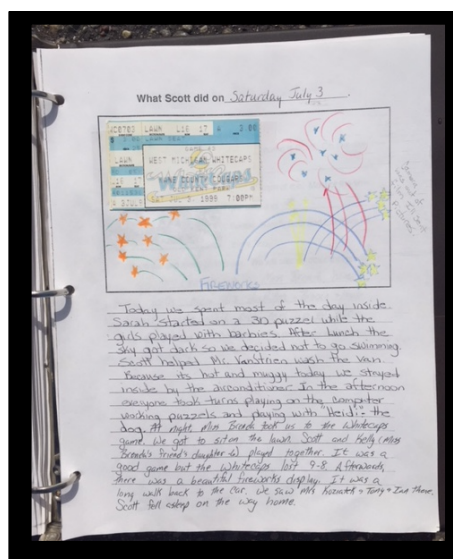 What Scott did on Saturday July 3
LAWN L16 17 A 3.00
GAME 43
LAWN
WEST MICHIGAN WHITECAPS
KANE COUNTY COUGARS
SAT JUL 3, 1999 7:00PM
Fireworks
Today we spent most of the day inside.
Sarah started on a 3D puzzel while the
girls played with barbies. After lunch the
sky got dark so we decided not to go swimming.
Scott helped Mr. VanStrien wash the van.
Because its hot and muggy today we strayed
inside by the airconditioner. In the afternoon
everyone took turns playing on the computer
working puzzels and playing with "Heidi" the
dog. At night, Miss Brenda took us to the Whitecaps
game. We got to sit on the lawn. Scott and Kelly (Miss
Brenda's friend's daughter) played together. It was a
good game but the Whitecaps lost 9-8. Afterwards,
there was a beautiful fireworks display. It was a
long walk back to the car. We saw Mrs + Tony + there.
Scott fell asleep on the way home.